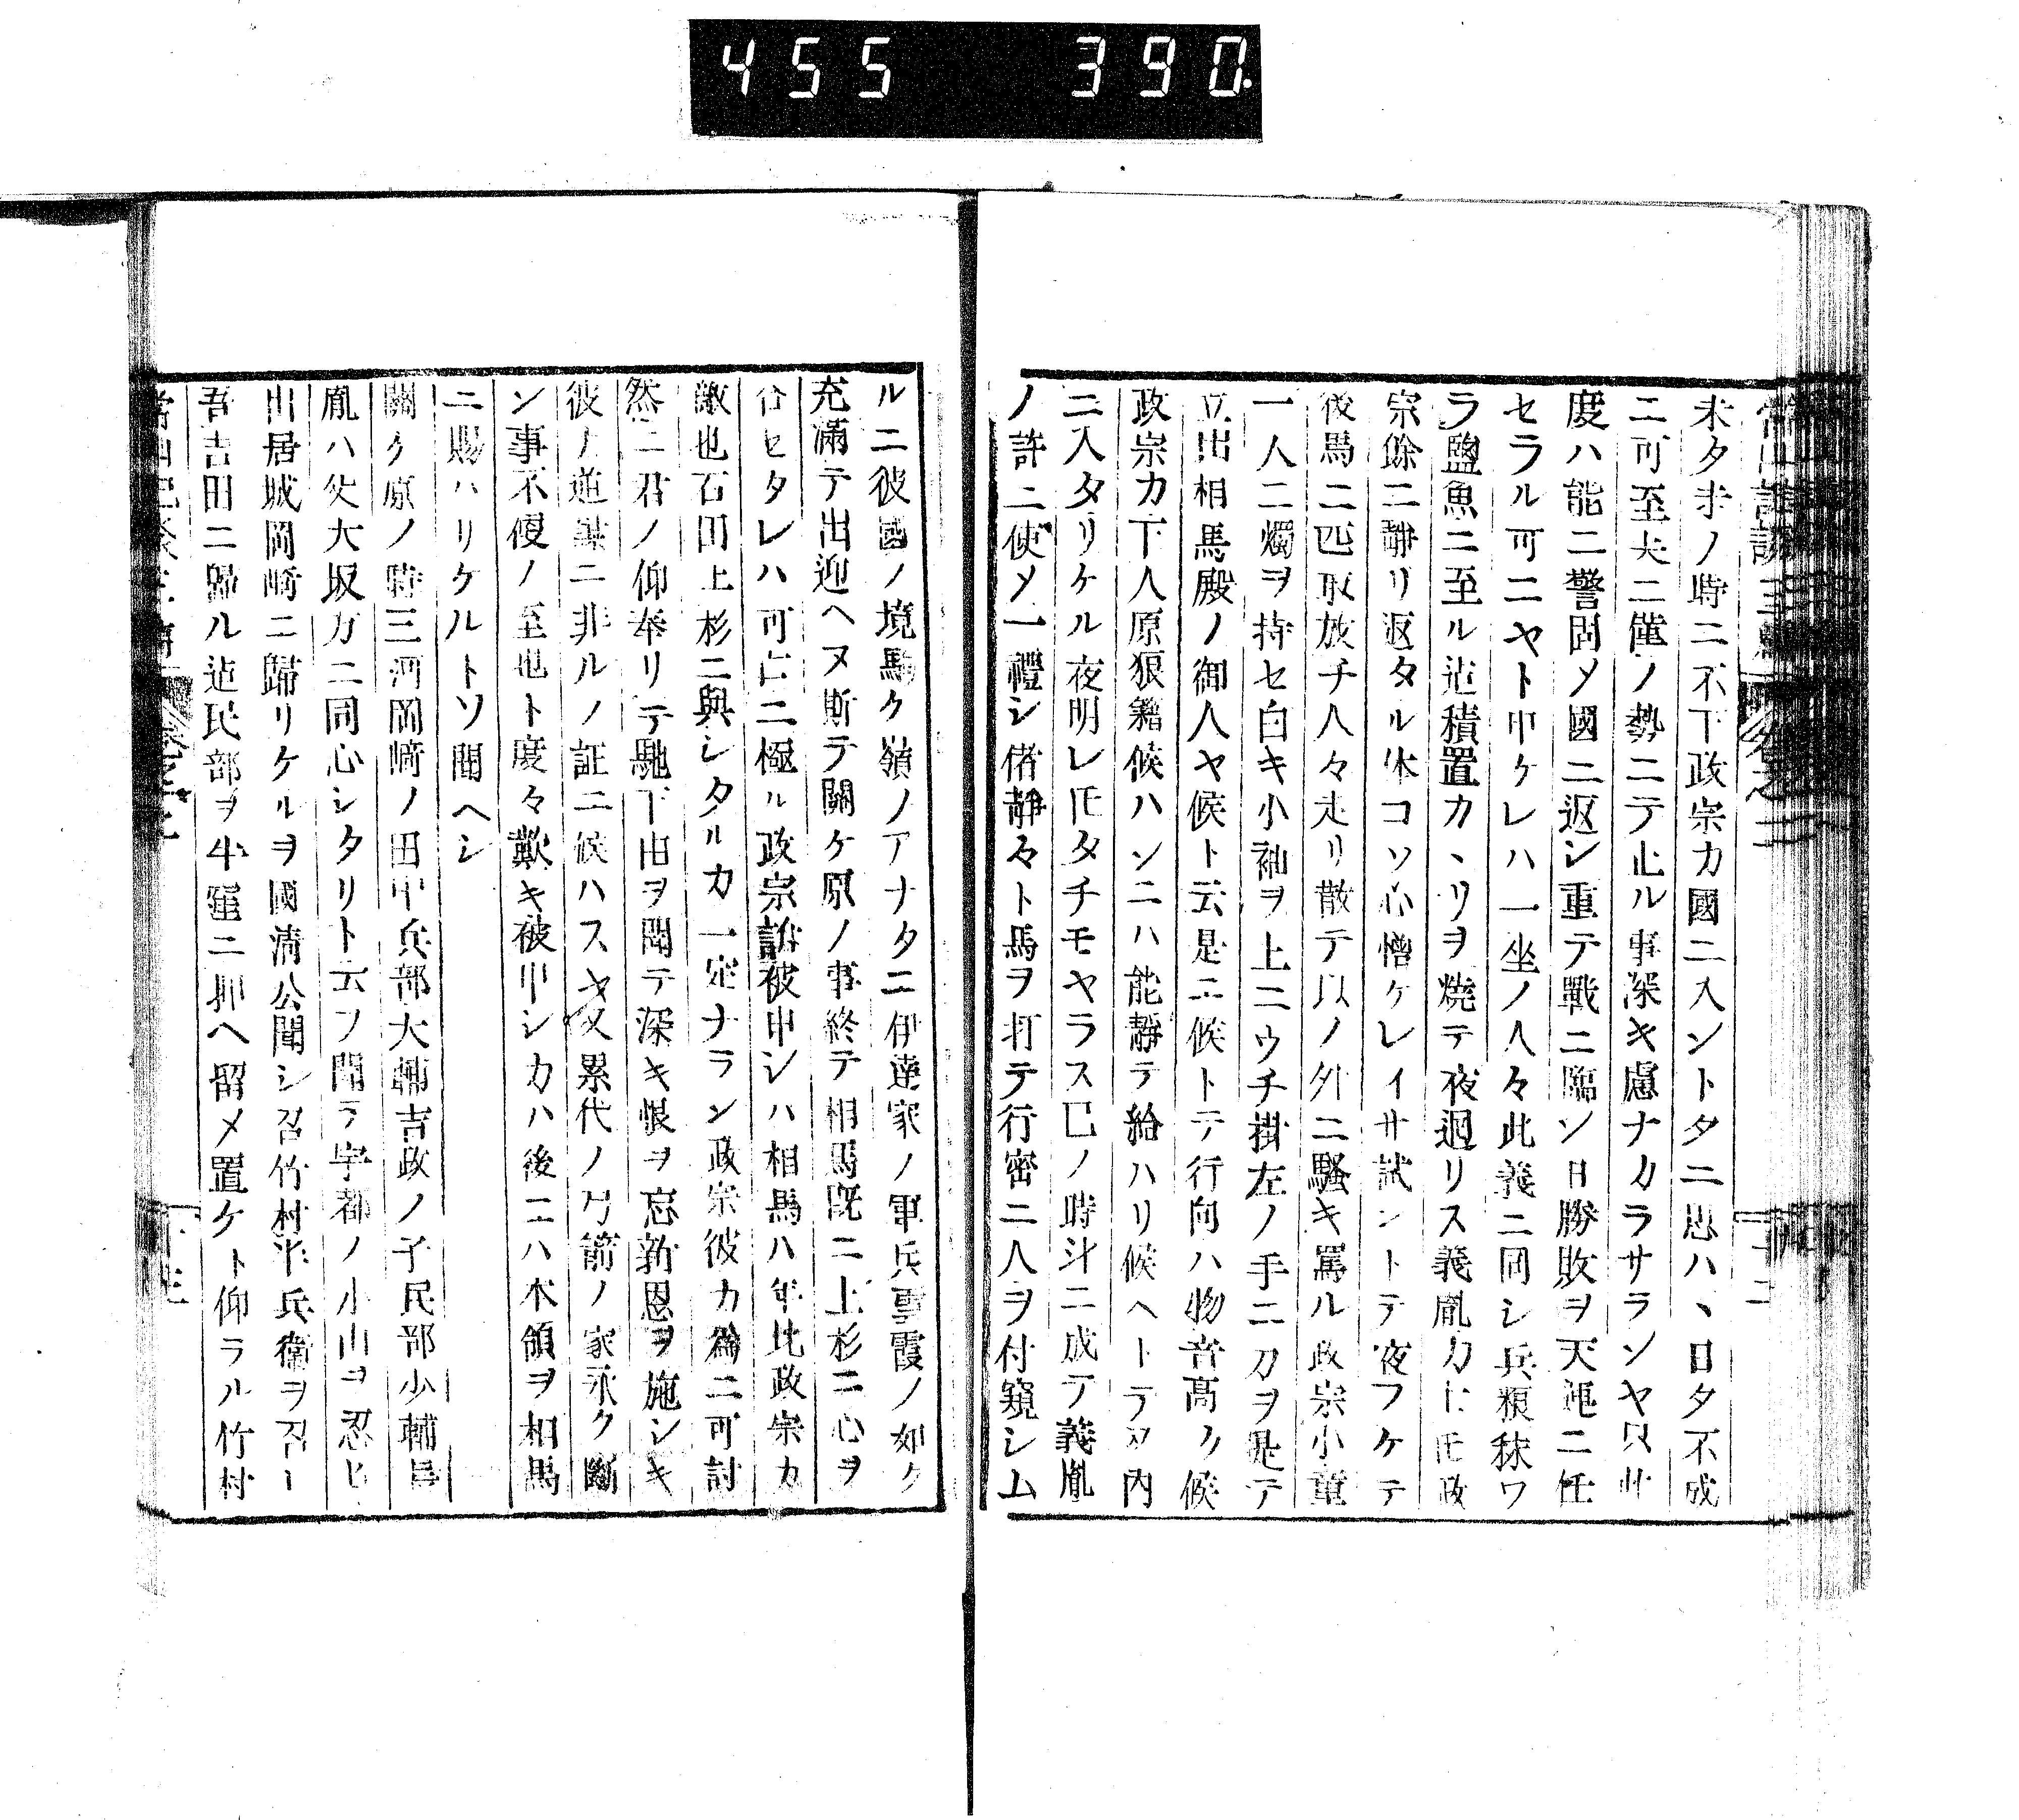 455 390.
未タ末ノ時ニ不下政宗カ國ニ入ントタニ思ハヽ日夕不成
ニ可至夫ニ僅ノ勢ニテ止ル事深キ慮ナカラサランヤ只此
度ハ能ニ警固メ國ニ返シ重テ戰ニ臨ン日勝敗ヲ天運ニ任
セラル可ニヤト申ケレハ一坐ノ人々此義ニ同シ兵粮秣ワ
ラ鹽魚ニ至ル迠積置カヽリヲ燒テ夜廻リス義胤カ士𪜈政
宗餘ニ靜リ返タル体コソ心憎ケレイサ試ントテ夜フケテ
後馬二匹取放チ人々走リ散テ以ノ外ニ騷キ罵ル政宗小童
一人ニ燭ヲ持セ白キ小袖ヲ上ニウチ掛左ノ手ニ刀ヲ是テ
立出相馬殿ノ御人ヤ候ト云是ニ候トテ行向ハ物音髙ク候
政宗カ下人原狼籍候ハンニハ能靜テ給ハリ候ヘトテ又內
ニ入タリケル夜明レ𪜈タチモヤラス巳ノ時計ニ成テ義胤
ノ許ニ使メ一禮シ偖靜々ト馬ヲ打テ行密ニ人ヲ付窺シム
ルニ彼國ノ境駒ク嶺ノアナタニ伊達家ノ軍兵雲霞ノ如ク
充滿テ出迎ヘヌ斯テ關ケ原ノ事終テ相馬既ニ上杉ニ心ヲ
合セタレハ可亡ニ極ル政宗訴被申シハ相馬ハ年比政宗カ
敵也石田上杉ニ與シタルカ一定ナラン政宗彼カ爲ニ可討
然ニ君ノ仰奉リテ馳下由ヲ聞テ深キ恨ヲ忘新恩ヲ施シキ
彼ノ逆謀ニ非ルノ証ニ候ハスヤ又累代ノ弓箭ノ家永ク斷
ン事不便ノ至也ト度々歎キ被申シカハ後ニハ本領ヲ相馬
ニ賜ハリケルトソ聞ヘシ
關ケ原ノ時三河岡﨑ノ田中兵部大輔吉政ノ子民部少輔長
胤ハ父大坂方ニ同心シタリト云フ聞テ宇都ノ小山ヲ忍ヒ
出居城岡﨑ニ歸リケルヲ國淸公聞シ召竹村半兵衞ヲ召ー
吾吉田ニ歸ル迠民部ヲ牛窪ニ押ヘ留メ置ケト仰ラル竹村